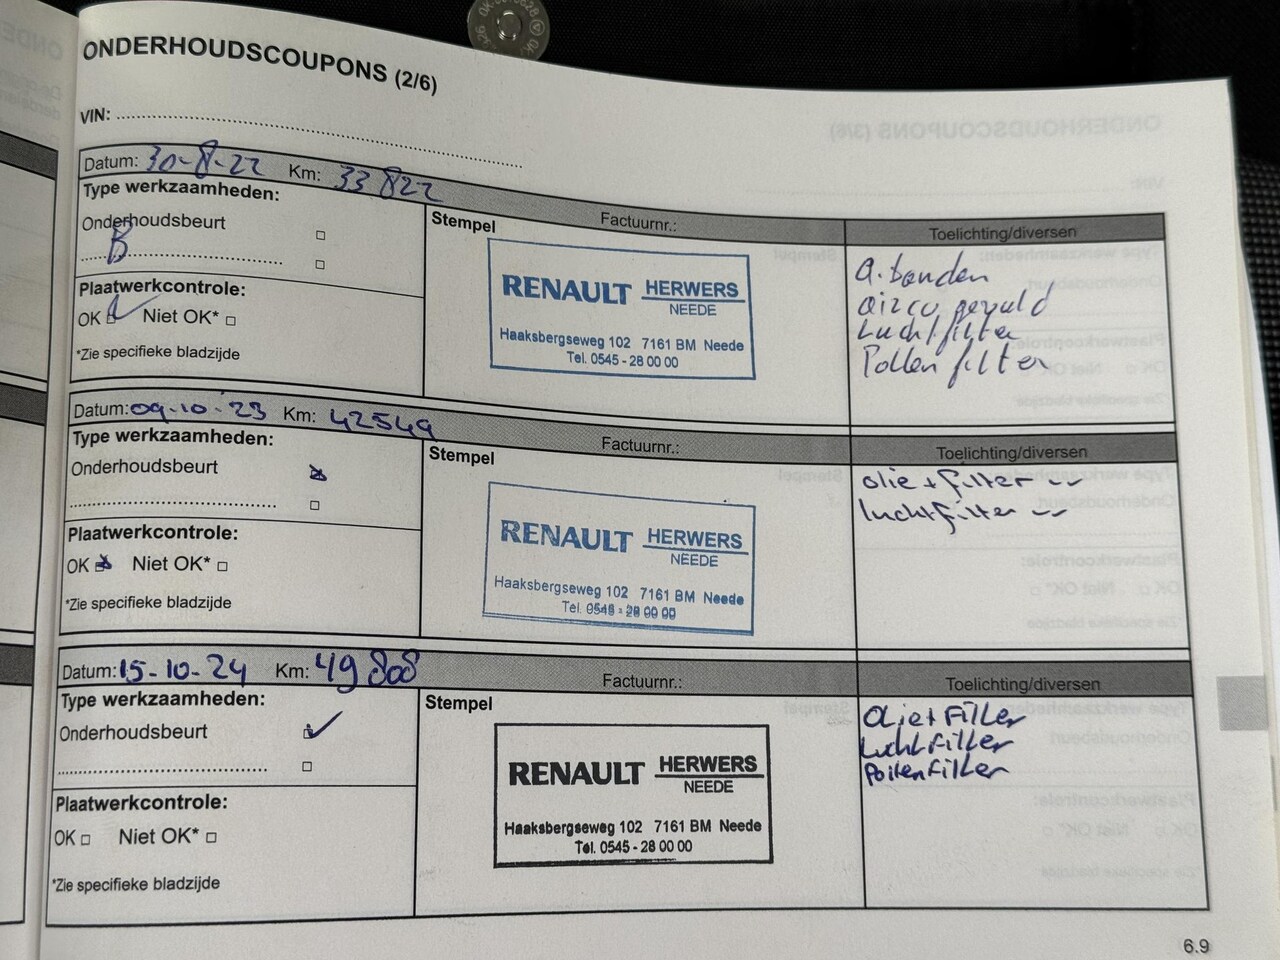 ONDERHOUDSCOUPONS (2/6)
VIN:
Datum: 30-8-22 Km: 33822
Type werkzaamheden:
Onderhoudsbeurt
B
Plaatwerkcontrole:
OK Niet OK*
*Zie specifieke bladzijde
Stempel
Factuurnr.:
RENAULT HERWERS
NEEDE
Haaksbergseweg 102 7161 BM Neede
Tel. 0545 - 28 00 00
Toelichting/diversen
a.banden
airco gevuld
Luchtfilter
Pollen filter
Datum: 09-10-23 Km: 42549
Type werkzaamheden:
Onderhoudsbeurt
Plaatwerkcontrole:
OK Niet OK*
*Zie specifieke bladzijde
Stempel
Factuurnr.:
RENAULT HERWERS
NEEDE
Haaksbergseweg 102 7161 BM Neede
Tel. 0545 - 28 00 00
Toelichting/diversen
olie + filter
luchtfilter
Datum: 15-10-24 Km: 49808
Type werkzaamheden:
Onderhoudsbeurt
Plaatwerkcontrole:
OK Niet OK*
*Zie specifieke bladzijde
Stempel
Factuurnr.:
RENAULT HERWERS
NEEDE
Haaksbergseweg 102 7161 BM Neede
Tel. 0545 - 28 00 00
Toelichting/diversen
olie+Filter
LuchtFilter
PollenFilter
6.9